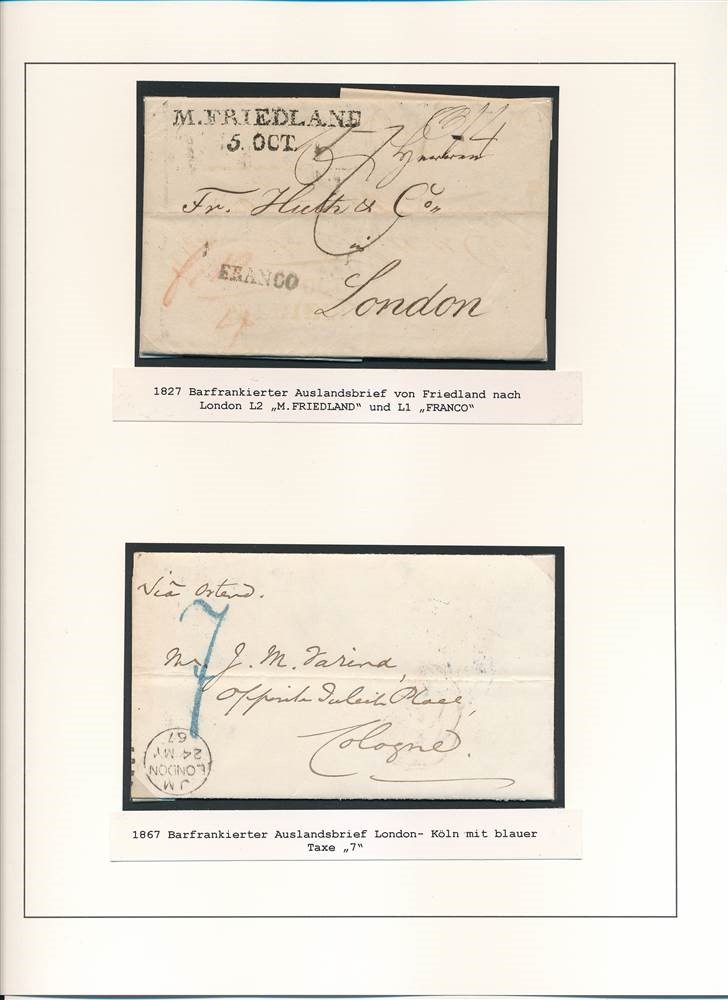 M.FRIEDLAND
5. OCT.
Herren
Fr. Huth & Con
in
London
FRANCO
1827 Barfrankierter Auslandsbrief von Friedland nach
London L2 „M.FRIEDLAND“ und L1 „FRANCO“
Viâ Ostend.
7
Mr. J. M. Farina,
Opposite Julichs Place,
Cologne.
JM
LONDON
24 MY
67
1867 Barfrankierter Auslandsbrief London- Köln mit blauer
Taxe „7“